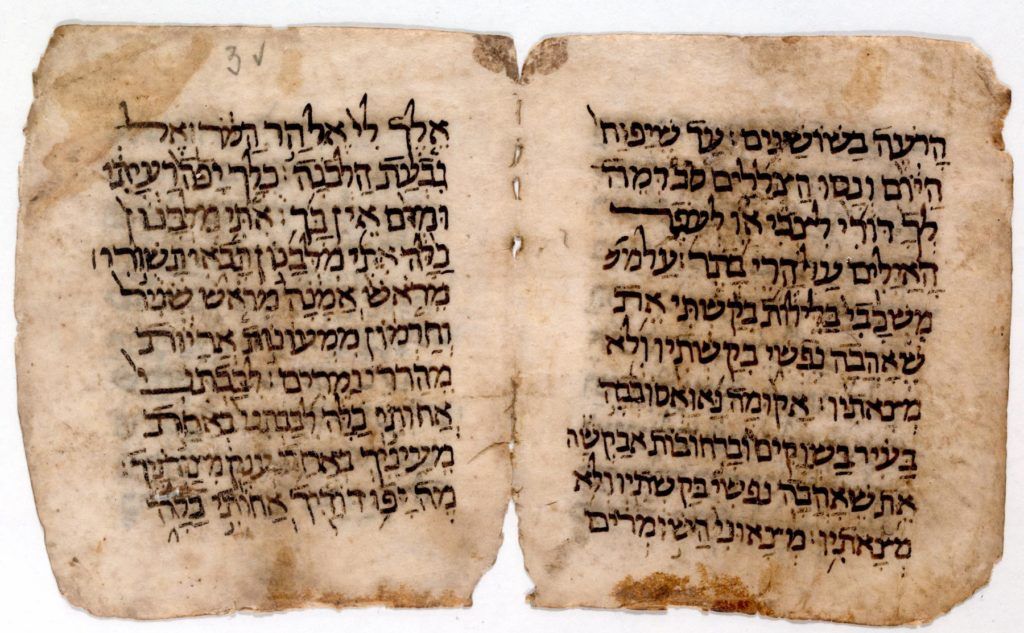 3 v
הרעה בשושנים : עד שיפוח
היום ונסו הצללים סב דמה
לך דודי לצבי או לעפר
האילים על הרי בתר : על מש
משכבי בלילות בקשתי את
שאהבה נפשי בקשתיו ולא
מצאתיו : אקומה נא ואסובבה
בעיר בשוקים וברחובות אבקשה
את שאהבה נפשי בקשתיו ולא
מצאתיו : מצאוני השומרים
אלך לי אל הר המר ואל
גבעת הלבנה : כלך יפה רעיתי
ומום אין בך : אתי מלבנון
כלה אתי מלבנון תבאי תשורי ו
מראש אמנה מראש שניר
וחרמון ממעונות אריות
מהררי נמרים : לבבתני
אחותי כלה לבבתני באחת
מעיניך באחד ענק מצורניך :
מה יפו דודיך אחותי כלה